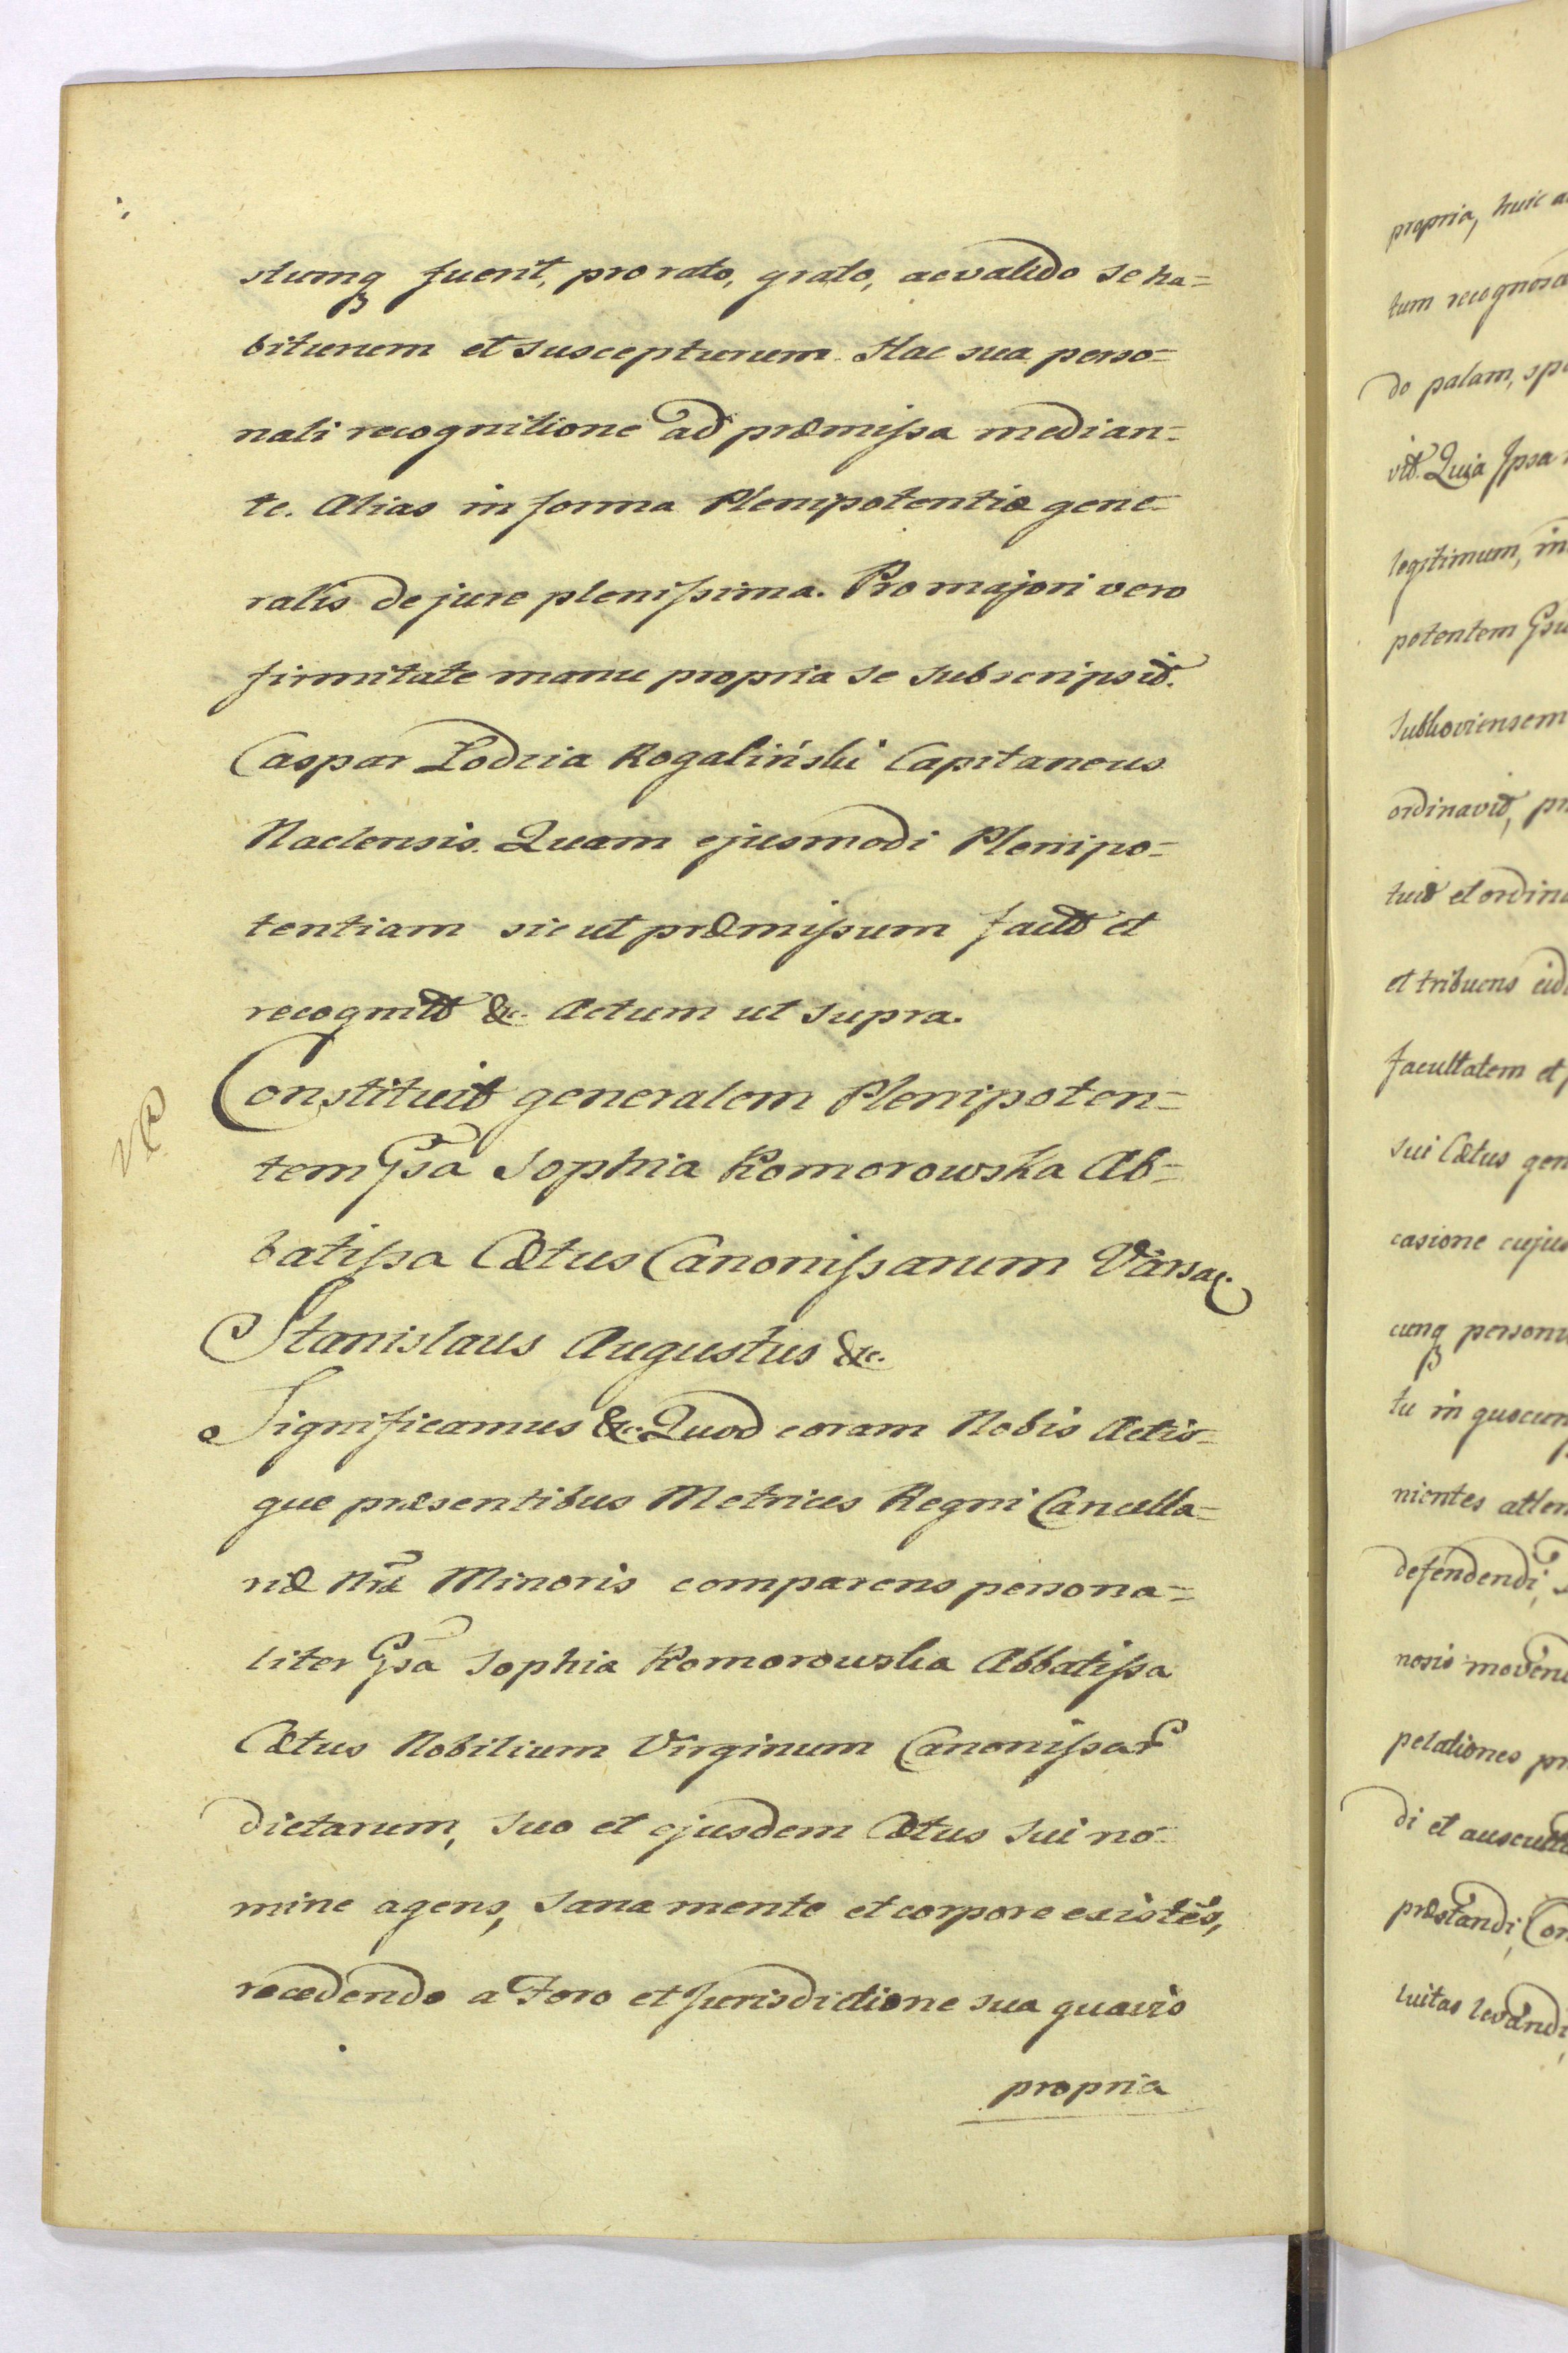 stumq fuerit, pro rato, grato, ac valido se ha=
biturum et suscepturum. Hac sua perso=
nali recognitione ad præmissa median=
te. Alias in forma Plenipotentiæ gene=
ralis de jure plenissima. Pro majori vero
firmitate manu propria se subscripsit.
Caspar Lodzia Rogaliński Capitaneus
Naclensis. Quam ejusmodi Plenipo=
tentiam sicut præmissum facta et
recognita &c. Actum ut supra.
Constituit generalem Plenipoten=
tem Gsa Sophia Komorowska Ab=
batissa Cætus Canonissarum Varsa.
Stanislaus Augustus &c.
Significamus &c. Quod coram Nobis Actis=
que præsentibus Metrices Regni Cancella=
riæ Nræ Minoris comparens persona=
liter Gsa Sophia Komorowska Abbatissa
Cætus Nobilium Virginum Canonissar
dictarum, suo et ejusdem Cætus sui no=
mine agens, sana mente et corpore existēs,
recedendo a Foro et Jurisdictione sua quavis
propria
propria, huic
tum
do palam,
vit. Quia Ipsa
legitimum, in
potentem
ordinavit,
et tribuens
facultatem et
sui Cætus gen
casione cujus
cunq
tu in quocun
nientes atten
defendendi,
pelationes
di et ausculta
præstandi,
luitas levandi